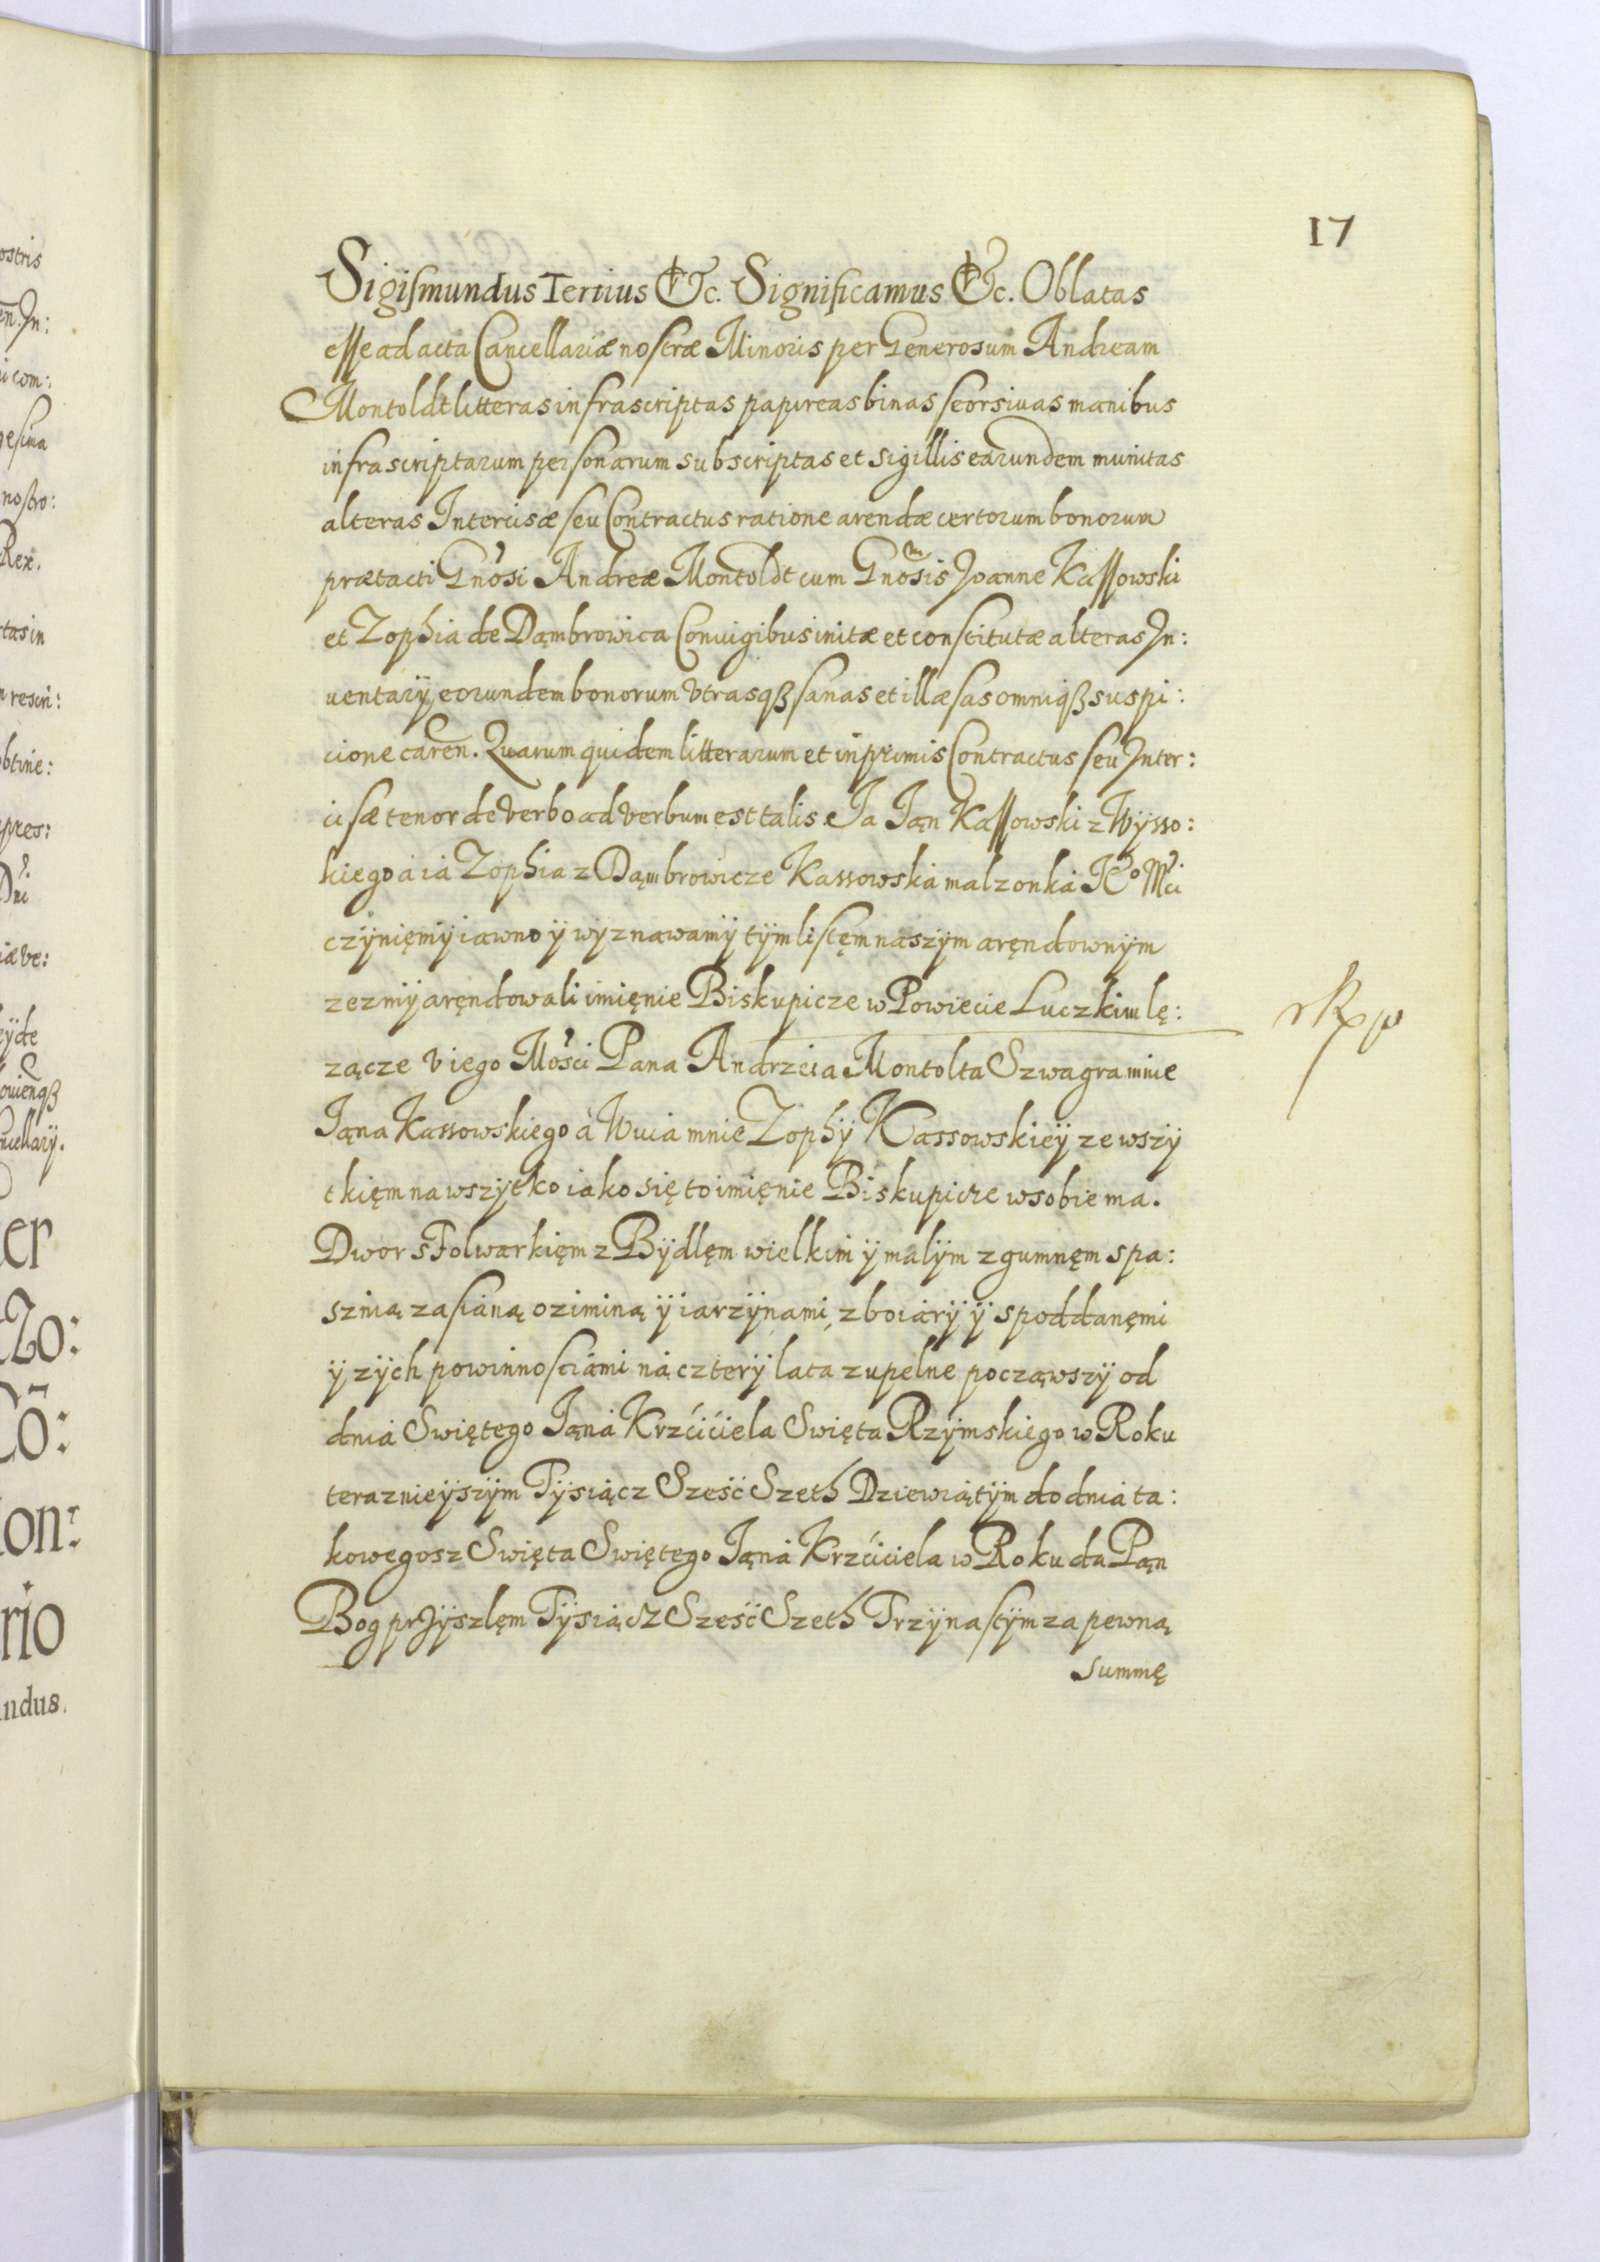 17
Sigismundus Tertius &c. Significamus &c. Oblatas
esse ad acta Cancellariæ nostræ Minoris per Generosum Andream
Montoldt litteras infrascriptas papireas binas seorsivas manibus
infrascriptarum personarum subscriptas et sigillis earundem munitas
alteras Intercisæ seu Contractus ratione arendæ certorum bonorum
prætacti Gnosi Andreæ Montoldt cum Gnosis Joanne Kassowski
et Zophia de Dąmbrowica Coniugibus initæ et constitutæ alteras In:
uentarÿ eorundem bonorum vtrasqȝ sanas et illæsas omniqȝ suspi:
cione caren. Quarum quidem litterarum et inprimis Contractus seu Inter:
cisæ tenor de verbo ad verbum est talis. Ja Ian Kassowski z Wÿsso:
kiego á iá Zophia z Dąmbrowicze Kassowska malzonká Ko Mci
czÿnięmÿ iawno ÿ wyznawamÿ tÿm listęm naszÿm aręndownÿm
zezmÿ aręndowali imięnie Biskupicze w Powiecie Luczkim lę:
zącze v iego Mości Pana Andrzeia Montolta Szwagra mnie
Iąna Kassowskiego á Wuia mnie Zophÿ Kassowskieÿ ze wszÿ
tkięm na wszÿtko iako się to imięnie Biskupicze w sobie ma.
Dwor s Folwarkięm z Bÿdlęm wielkim ÿ malÿm z gumnęm s pa:
sznią zasianą oziminą ÿ iarzÿnami, z boiárÿ ÿ s poddanęmi
ÿ zÿch powinnosciámi ná czterÿ lata zupelne począwszÿ od
dniá Swiętego Iąná Krzciciela Swięta Rzÿmskiego w Roku
teraznieÿszÿm Tÿsiącz Sześć Szeth Dziewiątÿm do dniá ta:
kowegosz Swięta Swiętego Iąná Krzciciela w Roku da Pąn
Bog przÿszlęm Tÿsiącz Sześć Szeth Trzÿnastÿm za pewną
summę